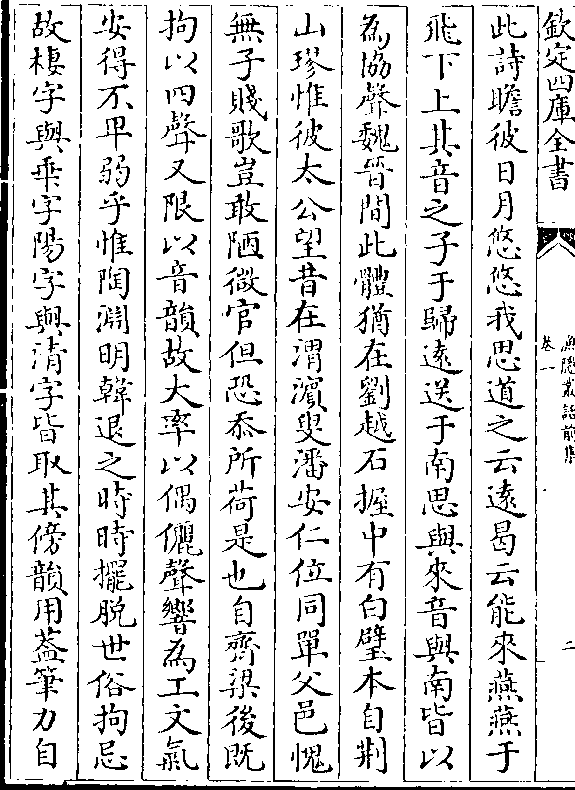 欽定四庫全書
漁隱叢話前集
卷一
二
此詩瞻彼日月悠悠我思道之云遠曷云能來燕燕于
飛下上其音之子于歸遠送于南思與來音與南皆以
為協聲魏晉間此體猶在劉越石握中有白璧本自荆
山璆惟彼太公望昔在渭濵叟潘安仁位同單父邑愧
無子賤歌豈敢陋微官但恐忝所荷是也自齊梁後既
拘以四聲又限以音韻故大率以偶儷聲響為工文氣
安得不卑弱乎惟陶淵明韓退之時時擺脱世俗拘忌
故棲字與乖字陽字與清字皆取其傍韻用葢筆力自